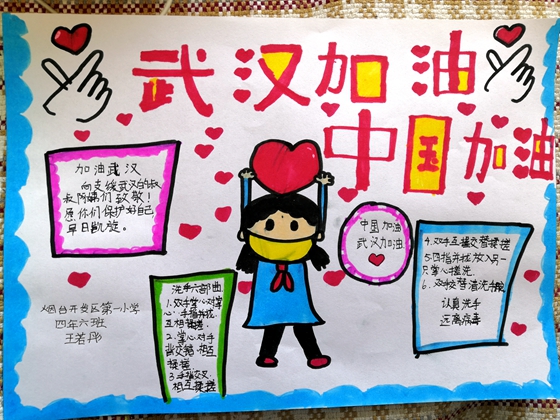 武汉加油
中国加油
加油武汉
向支援武汉的叔
叔阿姨们致敬!
愿你们保护好自己
早日凯旋。
中国加油
武汉加油
烟台开发区第一小学
四年六班
洗手六部曲
1.双手掌心对掌
心,手指并拢
互相搓揉
2.掌心对手
背交错,相互
搓揉
3.手背交叉,
相互搓揉
4.双手互握交替揉搓
5.四指并拢放入另一
只掌心搓洗
6.双手交替清洗手腕
认真洗手
远离病毒